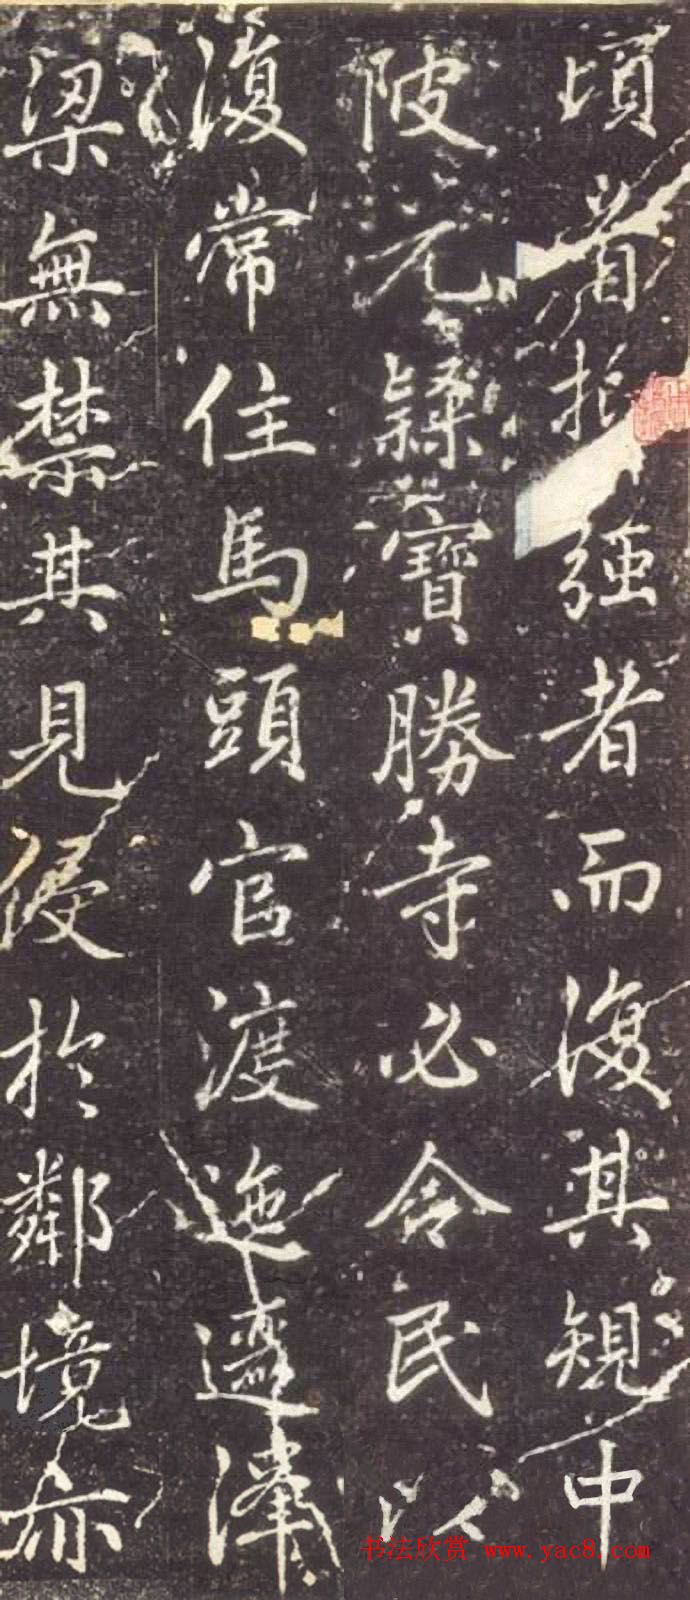 頃者扌強者而復其規中
陂元隸寶勝寺必令民以
復常住馬頭官渡迤邐澤
梁無禁其見侵於鄰境亦
书法欣赏 www.yac8.com